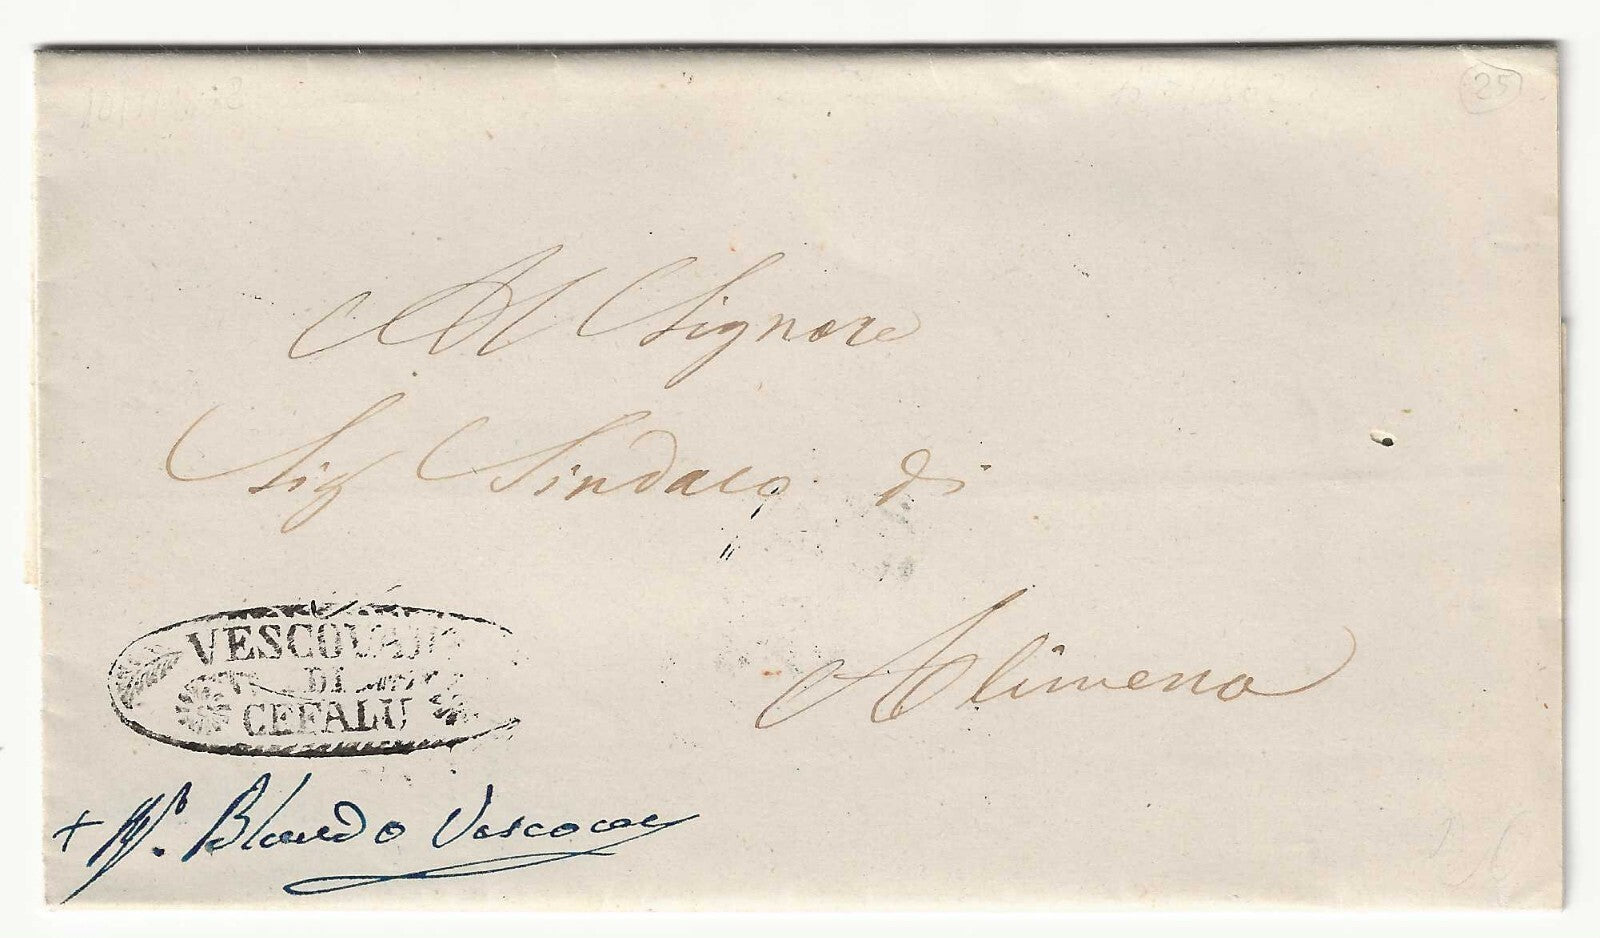 25
Al Signore
Sig Sindaco di
Alimena
VESCOVA
DI
CEFALU
+ Blando Vescovo